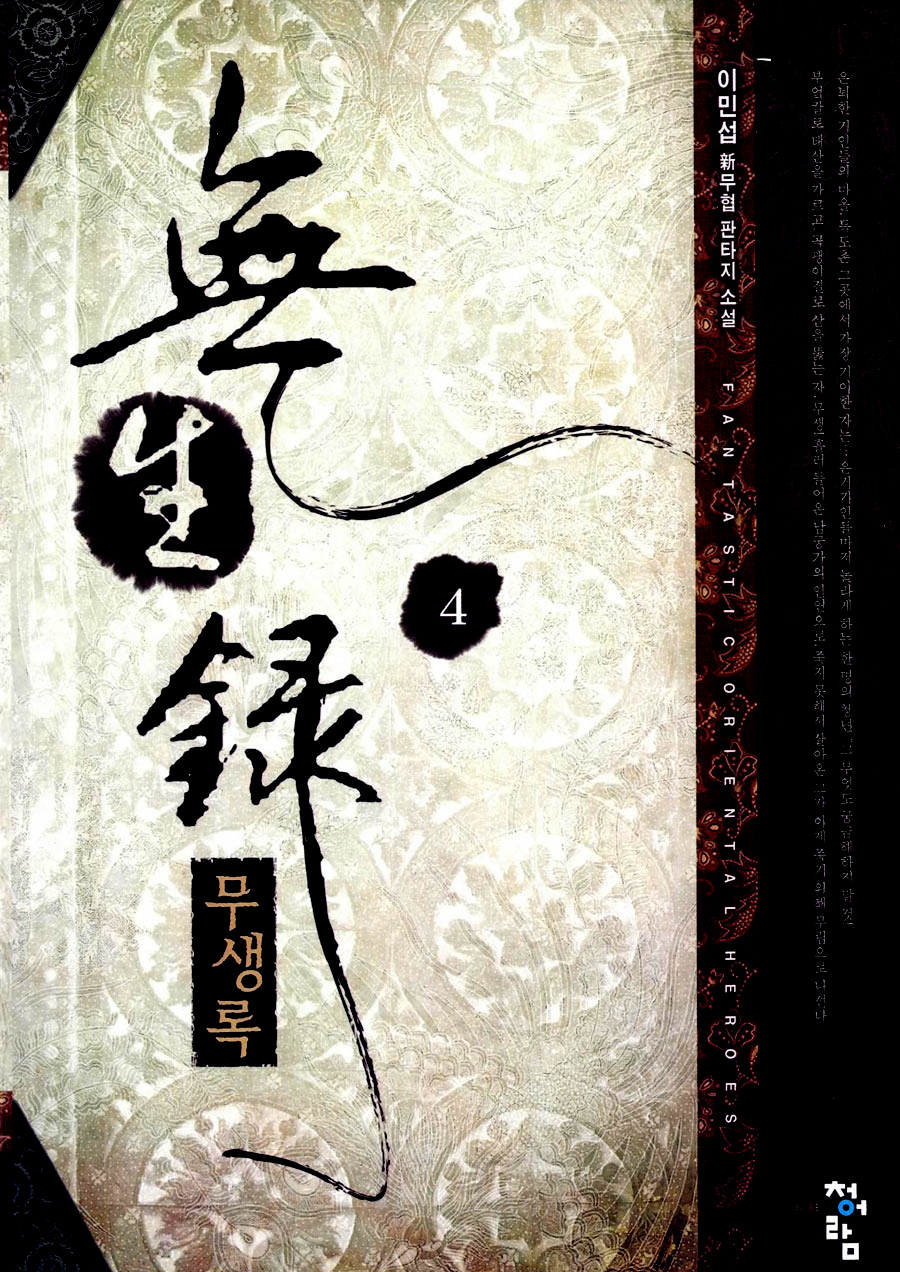 無
生
録
무생록
4
이민섭 新무협 판타지 소설
FANTASTIC ORIENTAL HEROES
은퇴한 기인들의 마을 독도촌 그곳에서 가장 기이한 자는… 은거기인들마저 놀라게 하는 한 명의 청년 그 무엇도 궁금해하지 말 것
부엌칼로 태산을 가르고 곡괭이질로 산을 뚫는 자 무생 흘러 들어온 남궁가의 인연으로 죽지 못해서 살아온 그가 이제 죽기 위해 무림으로 나선다
청어람